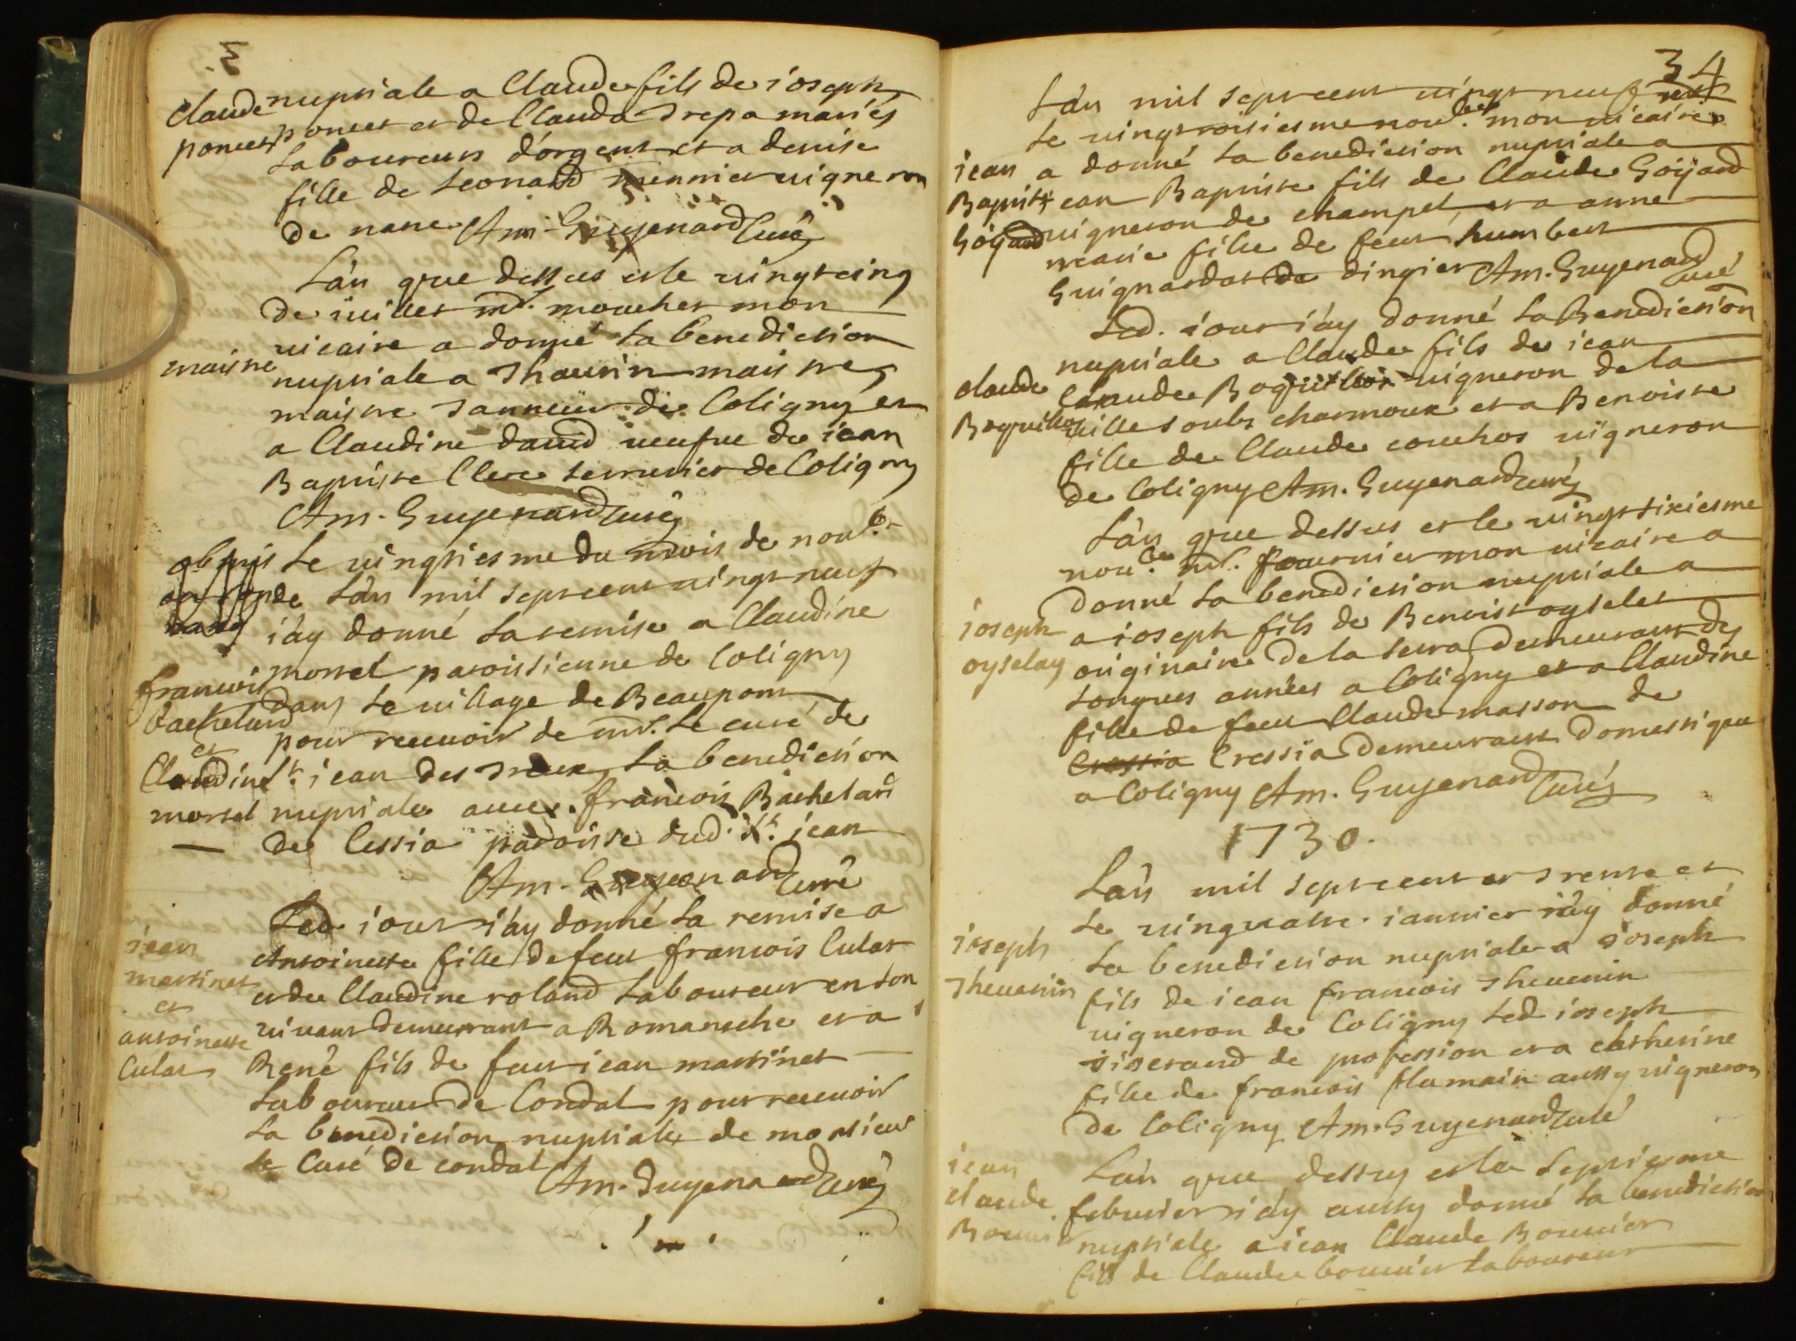 3.
Claude
poncet
nuptiale a Claude fils de ioseph
poncet et de Clauda trepa mariés
laboureurs d'orgent et a denise
fille de leonard meunier vigneron
de nanc Am. Guyenard Curé
L'an que dessus et le vingt cinq
de iuillet mr. mouchet mon
vicaire a donné la benediction
maistre
nuptiale a Thaurin maistre
maistre tanneur de Coligny et
a Claudine david veufve de iean
Baptiste Clerc serrurier de Coligny
Am. Guyenard Curé
Le vingtiesme du mois de noubr.
de l'an mil sept cent vingt neuf
i'ay donné la remise a Claudine
francois
bachelard
et
Claudine
morel
morel paroissienne de Coligny
dans le village de Beaupont
pour recevoir de mr. le curé de
st. iean des treux la benediction
nuptiale avec francois Bachelard
de Cessia paroisse dud. st. iean
Am. Guyenard Curé
Led. iour i'ay donné la remise a
iean
martinet
et
antoinette
Cular
Antoinette fille de feu francois Cular
et de Claudine roland laboureur en son
vivant demeurant a Romanesche et a
René fils de feu iean martinet
laboureur de Condal pour recevoir
la benediction nuptiale de monsieur
le Curé de condal
Am. Guyenard Curé
34
L'an mil sept cent vingt neuf
le vingt troisiesme nou.bre mon vicaire
iean
Baptiste
Goÿard
a donné la benediction nuptiale a
iean Baptiste fils de Claude Goÿard
vigneron de champel et a anne
marie fille de feu humbert
Guignardat de dingier Am. Guyenard
Curé
Led. iour i'ay donné la Benediction
nuptiale a Claude fils de iean
Claude
Boquillon
Claude Boquillon vigneron de la
ville soubs charmoux et a Benoiste
fille de Claude couchos vigneron
de Coligny Am. Guyenard Curé
L'an que dessus et le vingt sixiesme
nou.bre mr. fournier mon vicaire a
donné la benediction nuptiale a
ioseph
oyselay
a ioseph fils de Benoist oyselet
originaire de la serra demeurant de
longues années a Coligny et a Claudine
fille de feu Claude masson de
Cressia Cressia demeurant domestique
a Coligny Am. Guyenard Curé
1730.
L'an mil sept cent et trente et
le vingt quatre ianvier i'ay donné
ioseph
Thevenin
la benediction nuptiale a ioseph
fils de iean francois Thevenin
vigneron de Coligny led. ioseph
tisserand de profession et a catherine
fille de francois flamain aussy vigneron
de Coligny Am. Guyenard Curé
iean
claude
L'an que dessus et le septiesme
febvrier i'ay aussy donné la benediction
nuptiale a iean Claude Bouvier
fils de Claude bouvier laboureur